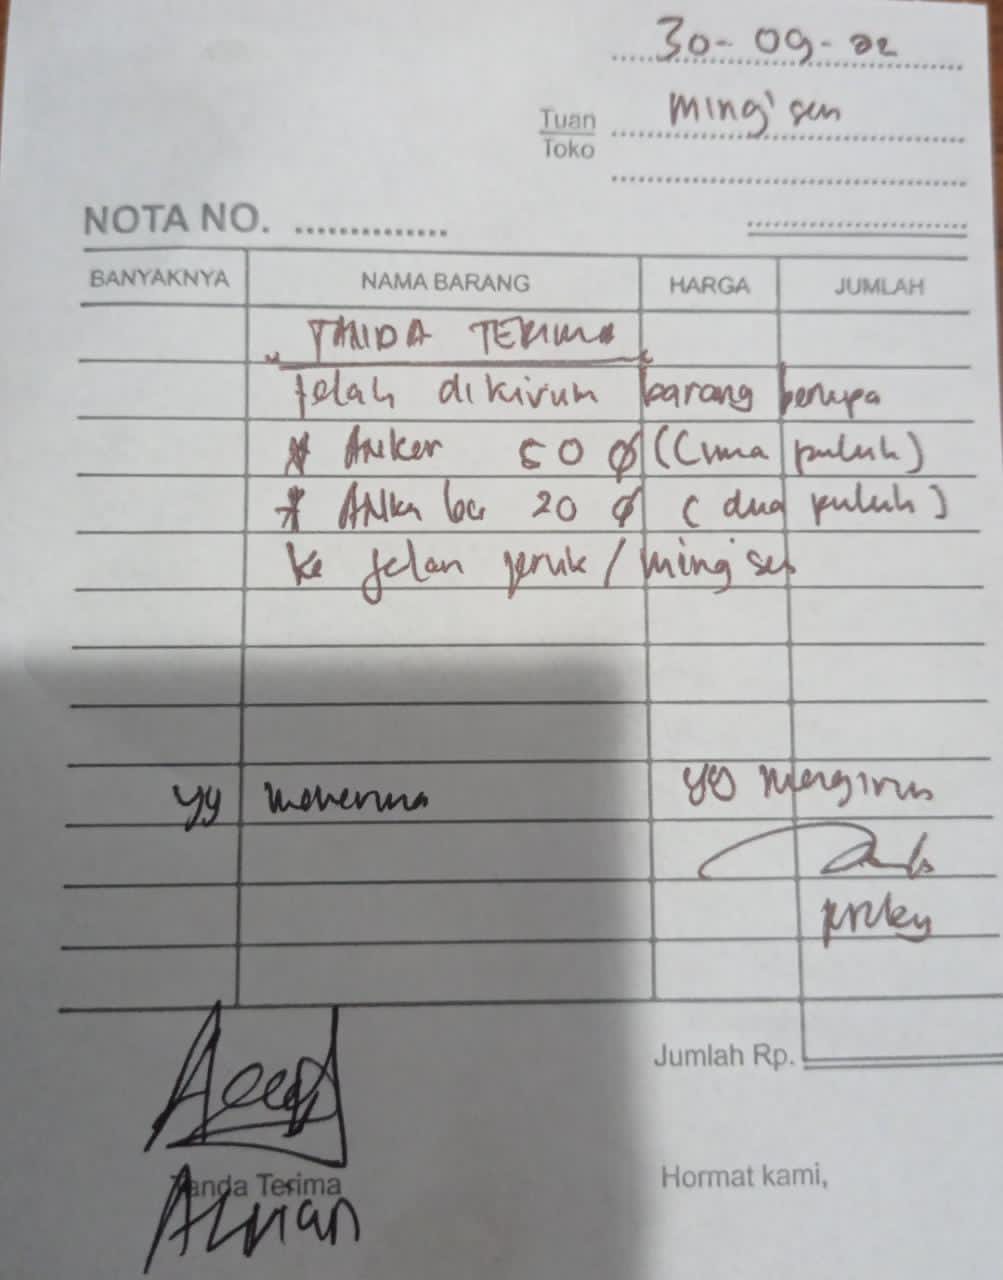 30-09-22
Tuan ming'sen
Toko
NOTA NO.
BANYAKNYA NAMA BARANG HARGA JUMLAH
TANDA TERIMA
telah dikirim barang berupa
* Anker 50 ∅ (Lima puluh)
* Anker 20 ∅ (dua puluh)
ke jalan jeruk / ming'sen
yg menerima yg mengirim
Jumlah Rp.
Tanda Terima Hormat kami,